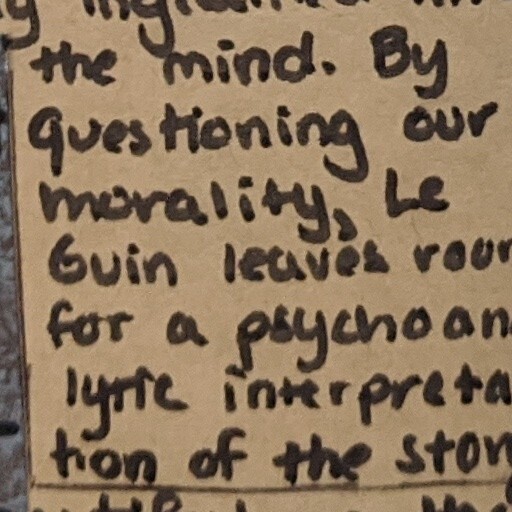 the mind. By
questioning our
morality, Le
Guin leaves room
for a psychoan
lytic interpreta
tion of the story